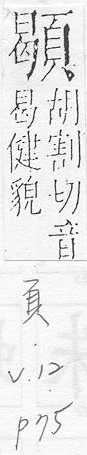 胡割切音
曷健貌
頁
v.12
p75